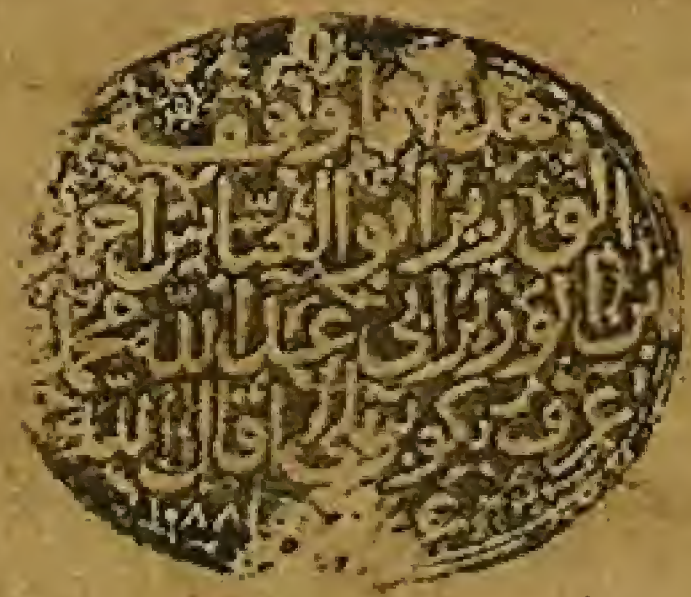 هذا ما وقفه
الوزير ابو العباس احمد
بن الوزير ابى عبد الله محمد
عرف بكوبريلى اقال الله
١٠٨٨